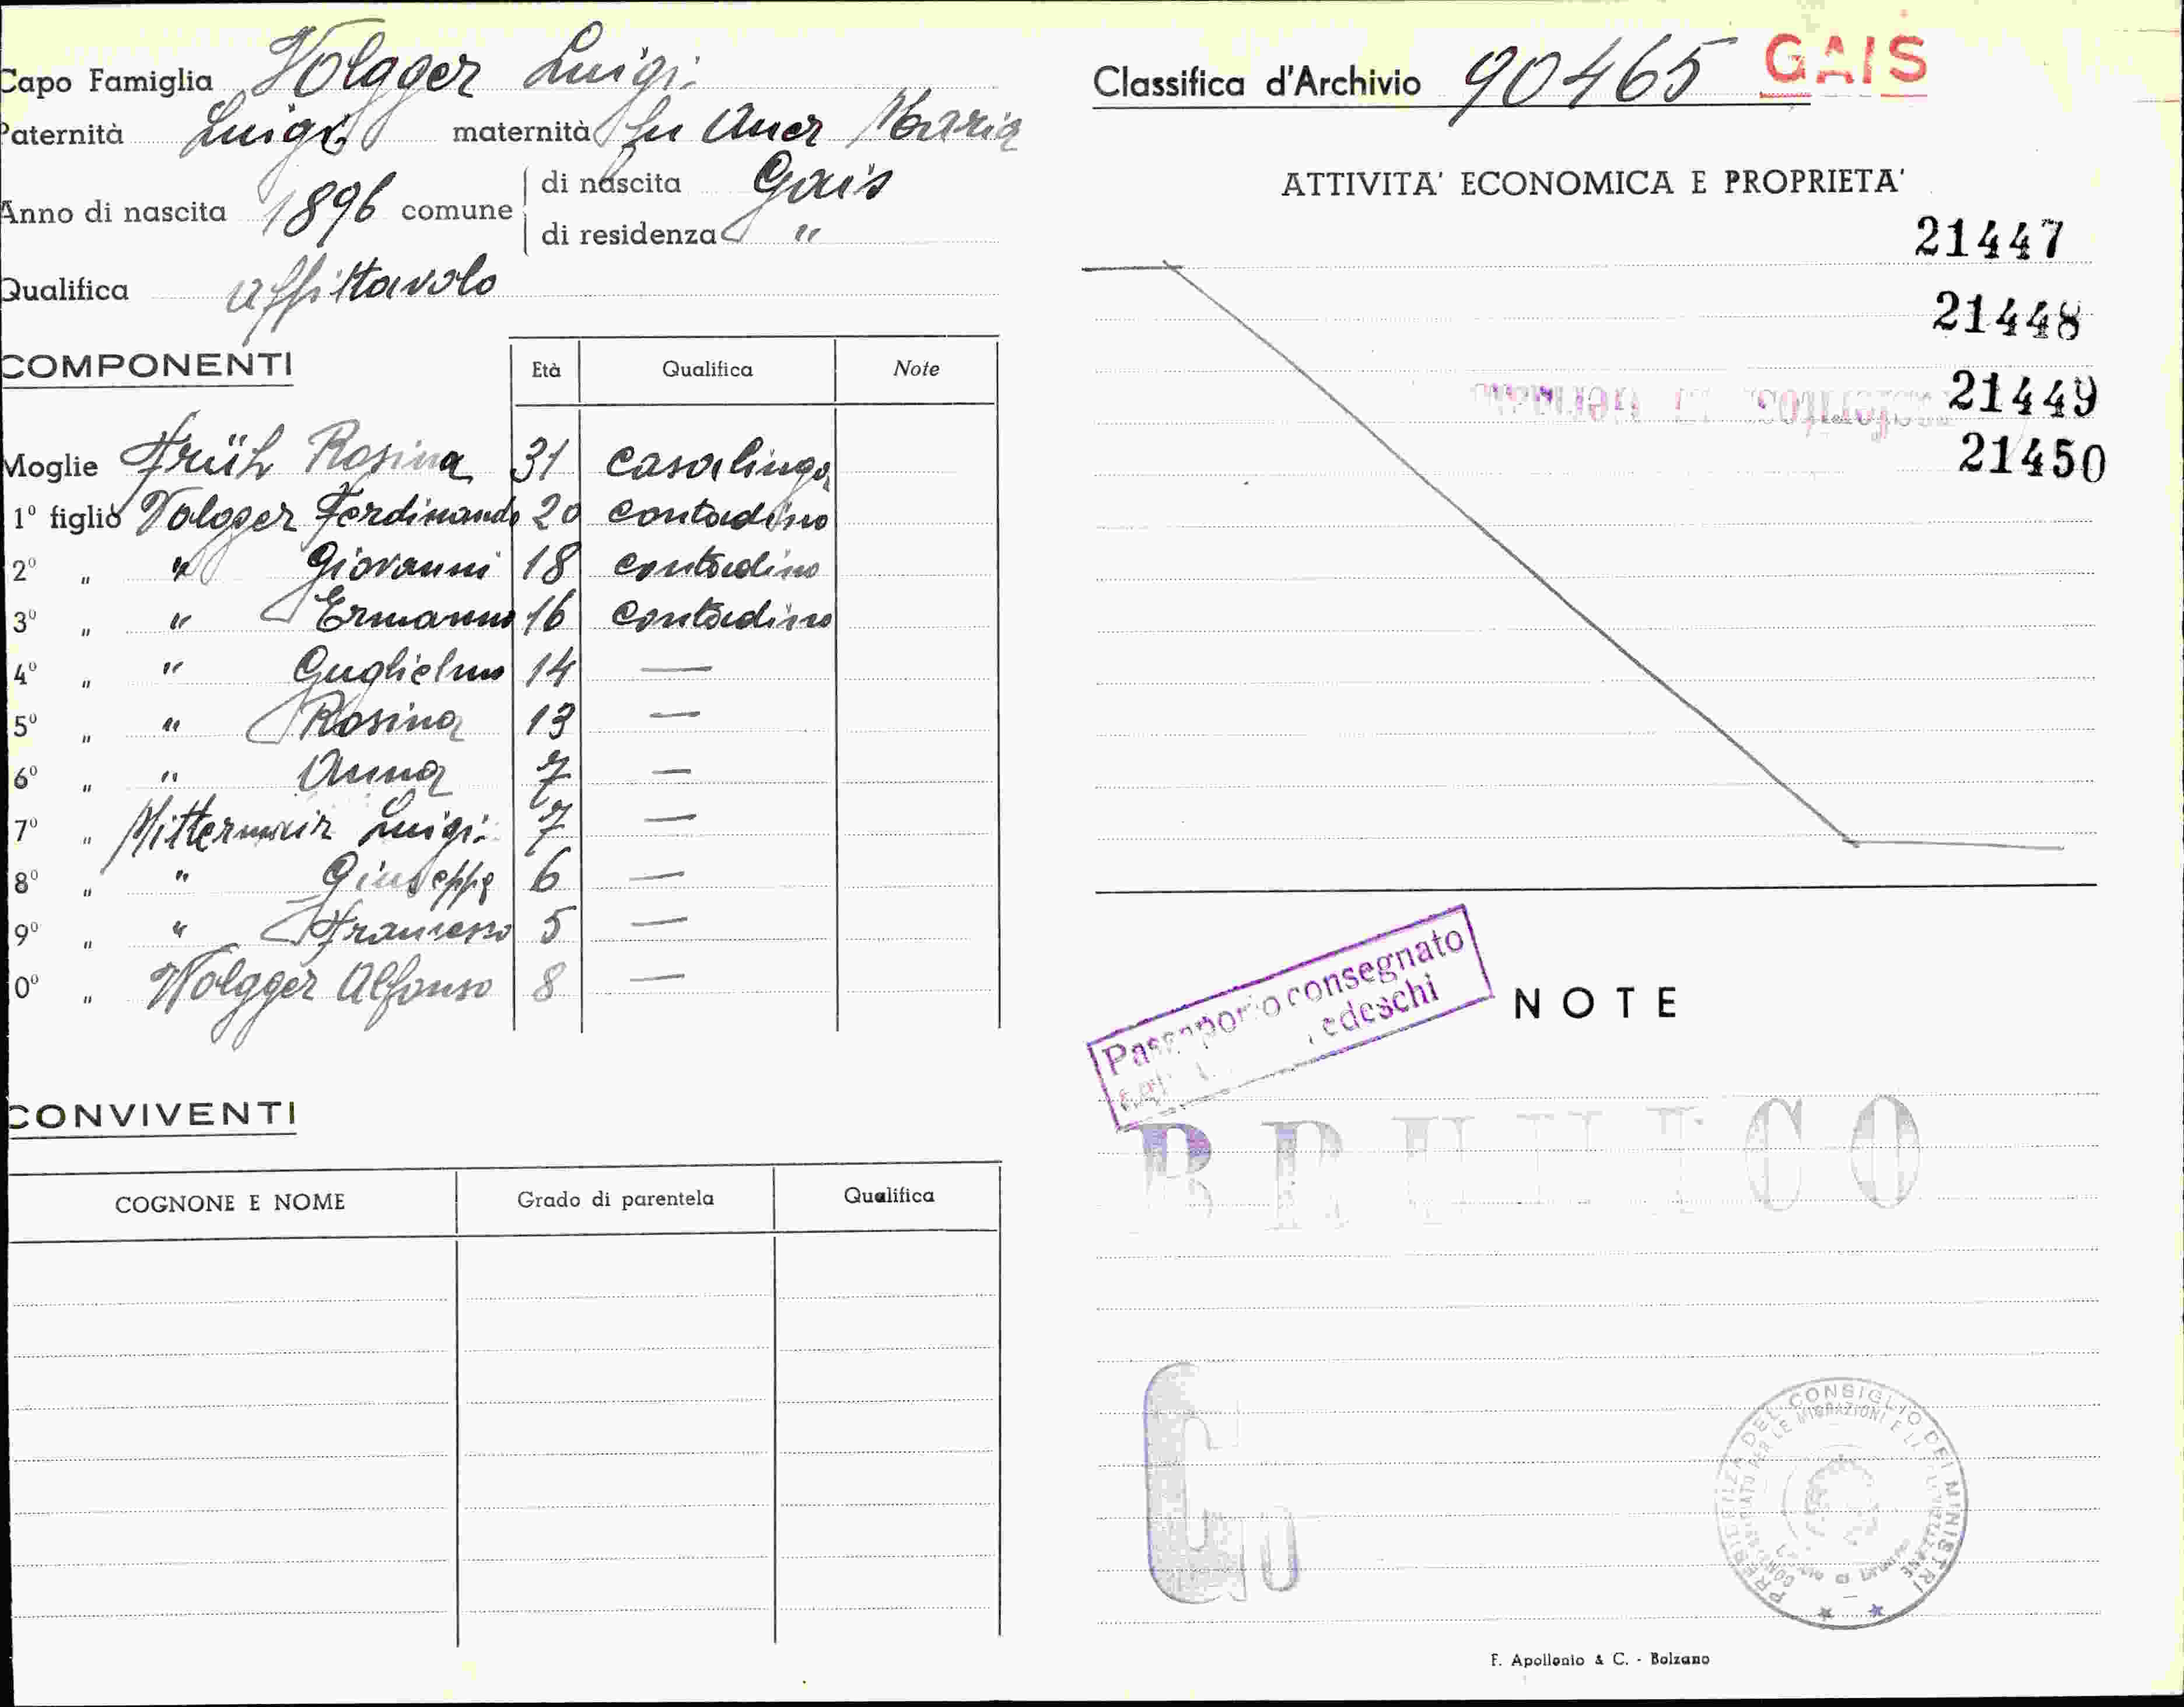 Capo Famiglia Volgger Luigi
Paternità Luigi maternità fu Auer Maria
Anno di nascita 1896 comune di nascita Gais
di residenza "
Qualifica affittavolo
COMPONENTI Età Qualifica Note
Moglie Früh Rosina 31 casalinga
1º figlio Volgger Ferdinando 20 contadino
2º " " Giovanni 18 contadino
3º " " Ermanno 16 contadino
4º " " Guglielmo 14 —
5º " " Rosina 13 —
6º " " Anna 7 —
7º " Mittermair Luigi 7 —
8º " " Giuseppe 6 —
9º " " Francesco 5 —
0º " Volgger Alfonso 8 —
CONVIVENTI
COGNONE E NOME Grado di parentela Qualifica
Classifica d'Archivio 90465 GAIS
ATTIVITA' ECONOMICA E PROPRIETA'
21447
21448
21449
21450
Passaporto consegnato
tedeschi
NOTE
BRUNICO
PRESIDENZA DEL CONSIGLIO DEI MINISTRI
F. Apollonio & C. - Bolzano